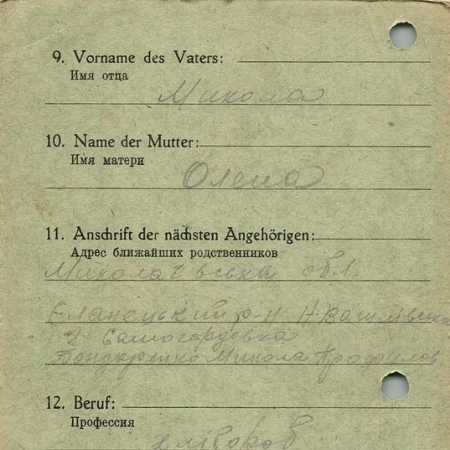 9. Vorname des Vaters:
Имя отца
Микола
10. Name der Mutter:
Имя матери
Олена
11. Anschrift der nächsten Angehörigen:
Адрес ближайших родственников
обл.
Еланецький р-н
Бондаренко Микола
12. Beruf:
Профессия
хлібороб